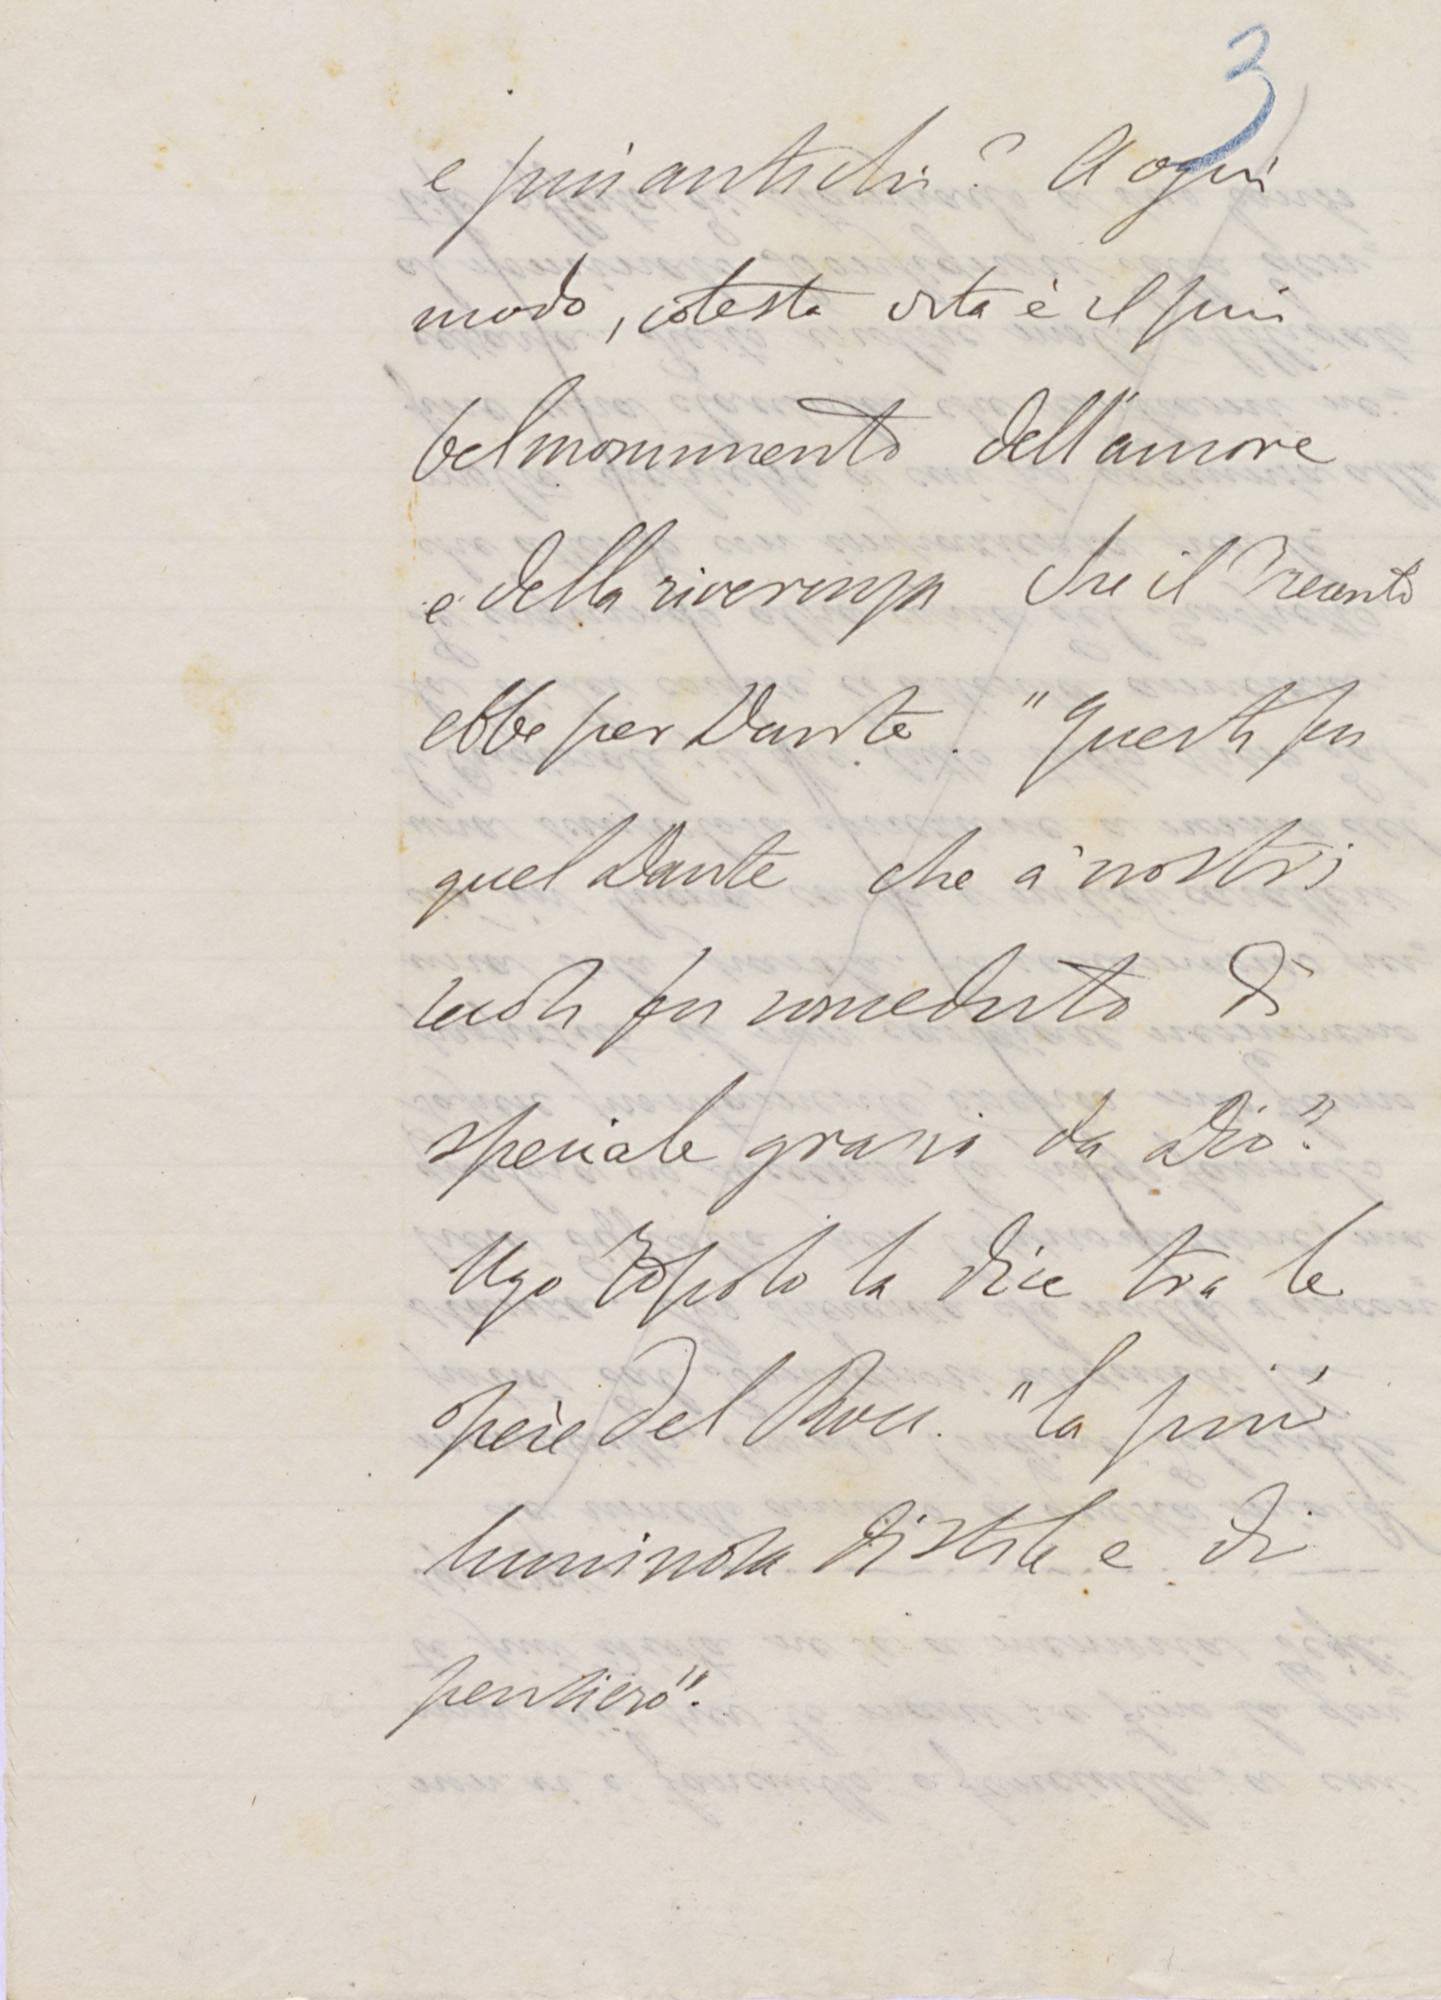 3
e più antichi? A ogni
modo, cotesta vita è il più
bel monumento dell'amore
e della riverenza che il Trecento
ebbe per Dante. "Questi fu
quel Dante che a' nostri
secoli fu conceduto di
speciale grazia da Dio".
Ugo Foscolo la dice tra le
opere del Bocc. "la più
luminosa di stile e di
pensiero".